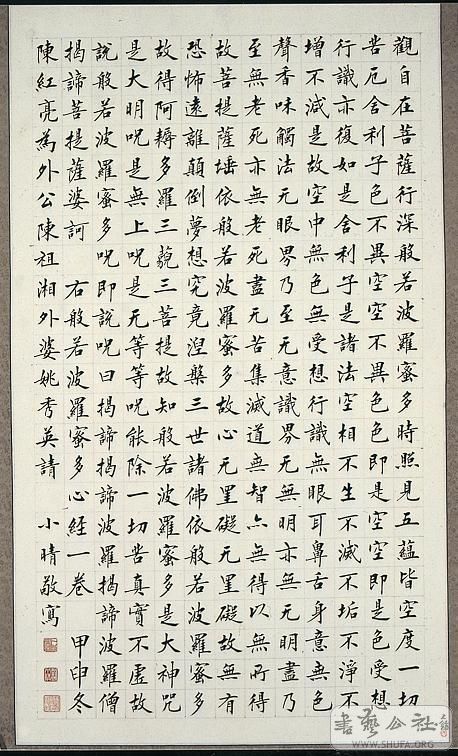 觀自在菩薩行深般若波羅蜜多時照見五蘊皆空度一切
苦厄舍利子色不異空空不異色色即是空空即是色受想
行識亦復如是舍利子是諸法空相不生不滅不垢不淨不
增不減是故空中無色無受想行識無眼耳鼻舌身意無色
聲香味觸法无眼界乃至无意識界无無明亦無无明盡乃
至無老死亦無老死盡无苦集滅道無智亦無得以無所得
故菩提薩埵依般若波羅蜜多故心无罣礙无罣礙故無有
恐怖遠離顛倒夢想究竟涅槃三世諸佛依般若波羅蜜多
故得阿耨多羅三藐三菩提故知般若波羅蜜多是大神咒
是大明呪是無上呪是无等等呪能除一切苦真實不虛故
說般若波羅蜜多呪即說呪曰揭諦揭諦波羅揭諦波羅僧
揭諦菩提薩婆訶 右般若波羅蜜多心經一卷 甲申冬
陳紅亮為外公陳祖湘外婆姚秀英請 小晴敬寫
書藝公社
WWW.SHUFA.ORG